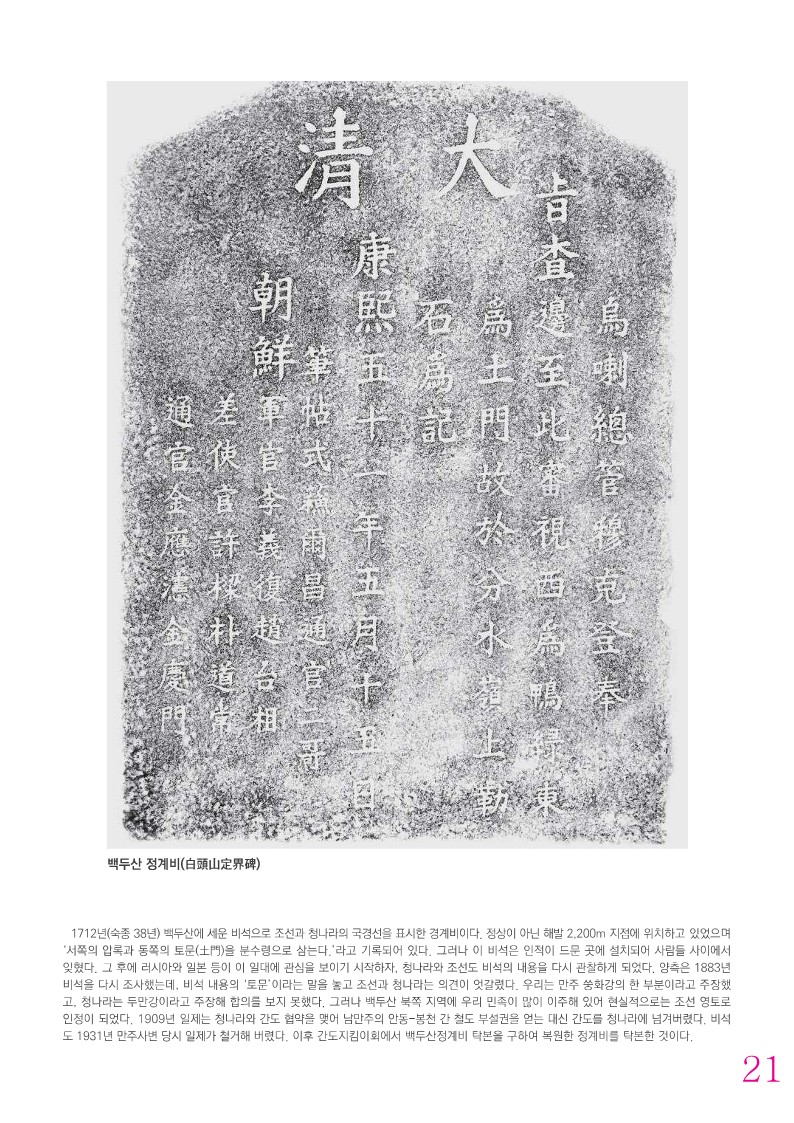 大清
烏喇總管穆克登奉
旨査邊至此審視西爲鴨緑東
爲土門故於分水嶺上勒
石爲記
康熙五十一年五月十五日
筆帖式蘓爾昌通官二哥
朝鮮軍官李義復趙台相
差使官許樑朴道常
通官金應瀗金慶門
백두산 정계비(白頭山定界碑)
1712년(숙종 38년) 백두산에 세운 비석으로 조선과 청나라의 국경선을 표시한 경계비이다. 정상이 아닌 해발 2,200m 지점에 위치하고 있었으며
‘서쪽의 압록과 동쪽의 토문(土門)을 분수령으로 삼는다.’라고 기록되어 있다. 그러나 이 비석은 인적이 드문 곳에 설치되어 사람들 사이에서
잊혔다. 그 후에 러시아와 일본 등이 이 일대에 관심을 보이기 시작하자, 청나라와 조선도 비석의 내용을 다시 관찰하게 되었다. 양측은 1883년
비석을 다시 조사했는데, 비석 내용의 ‘토문’이라는 말을 놓고 조선과 청나라는 의견이 엇갈렸다. 우리는 만주 쑹화강의 한 부분이라고 주장했
고, 청나라는 두만강이라고 주장해 합의를 보지 못했다. 그러나 백두산 북쪽 지역에 우리 민족이 많이 이주해 있어 현실적으로는 조선 영토로
인정이 되었다. 1909년 일제는 청나라와 간도 협약을 맺어 남만주의 안동-봉천 간 철도 부설권을 얻는 대신 간도를 청나라에 넘겨버렸다. 비석
도 1931년 만주사변 당시 일제가 철거해 버렸다. 이후 간도지킴이회에서 백두산정계비 탁본을 구하여 복원한 정계비를 탁본한 것이다.
21